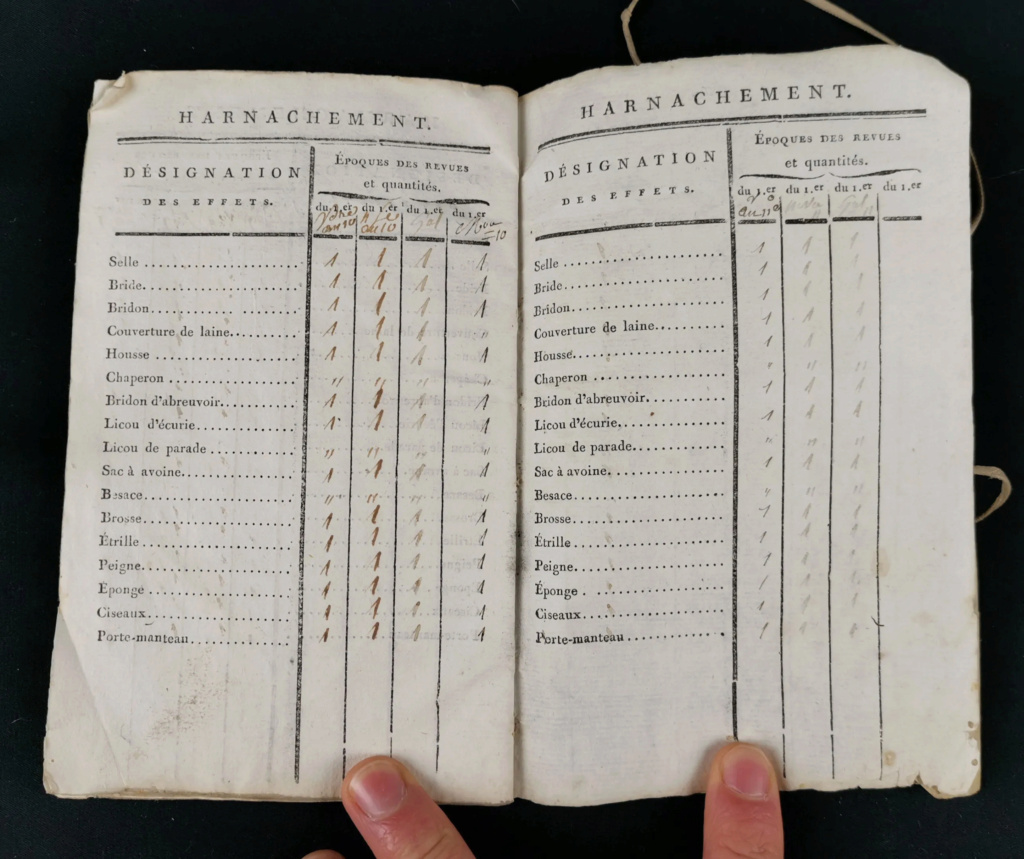 HARNACHEMENT.
DÉSIGNATION
DES EFFETS.
ÉPOQUES DES REVUES
et quantités.
du 1.er du 1.er du 1.er du 1.er
an 10 an 10 10
Selle 1 1 1 1
Bride. 1 1 1 1
Bridon. 1 1 1 1
Couverture de laine. 1 1 1
Housse 1 1 1 1
Chaperon " " " "
Bridon d'abreuvoir. 1 1 1 1
Licou d'écurie. 1 1 1 1
Licou de parade " " " "
Sac à avoine. 1 1 1 1
Besace. " " " "
Brosse. 1 1 1 1
Étrille 1 1 1 1
Peigne. 1 1 1 1
Éponge 1 1 1 1
Ciseaux. 1 1 1 1
Porte-manteau. 1 1 1 1
HARNACHEMENT.
DÉSIGNATION
DES EFFETS.
ÉPOQUES DES REVUES
et quantités.
du 1.er du 1.er du 1.er du 1.er
an 11
Selle 1 1 1
Bride. 1 1 1
Bridon. 1 1 1
Couverture de laine. 1 1 1
Housse. 1 1 1
Chaperon " " "
Bridon d'abreuvoir. 1 1 1
Licou d'écurie. 1 1 1
Licou de parade. " " "
Sac à avoine. 1 1 1
Besace. " " "
Brosse. 1 1 1
Étrille 1 1 1
Peigne. 1 1 1
Éponge 1 1 1
Ciseaux. 1 1 1
Porte-manteau 1 1 1